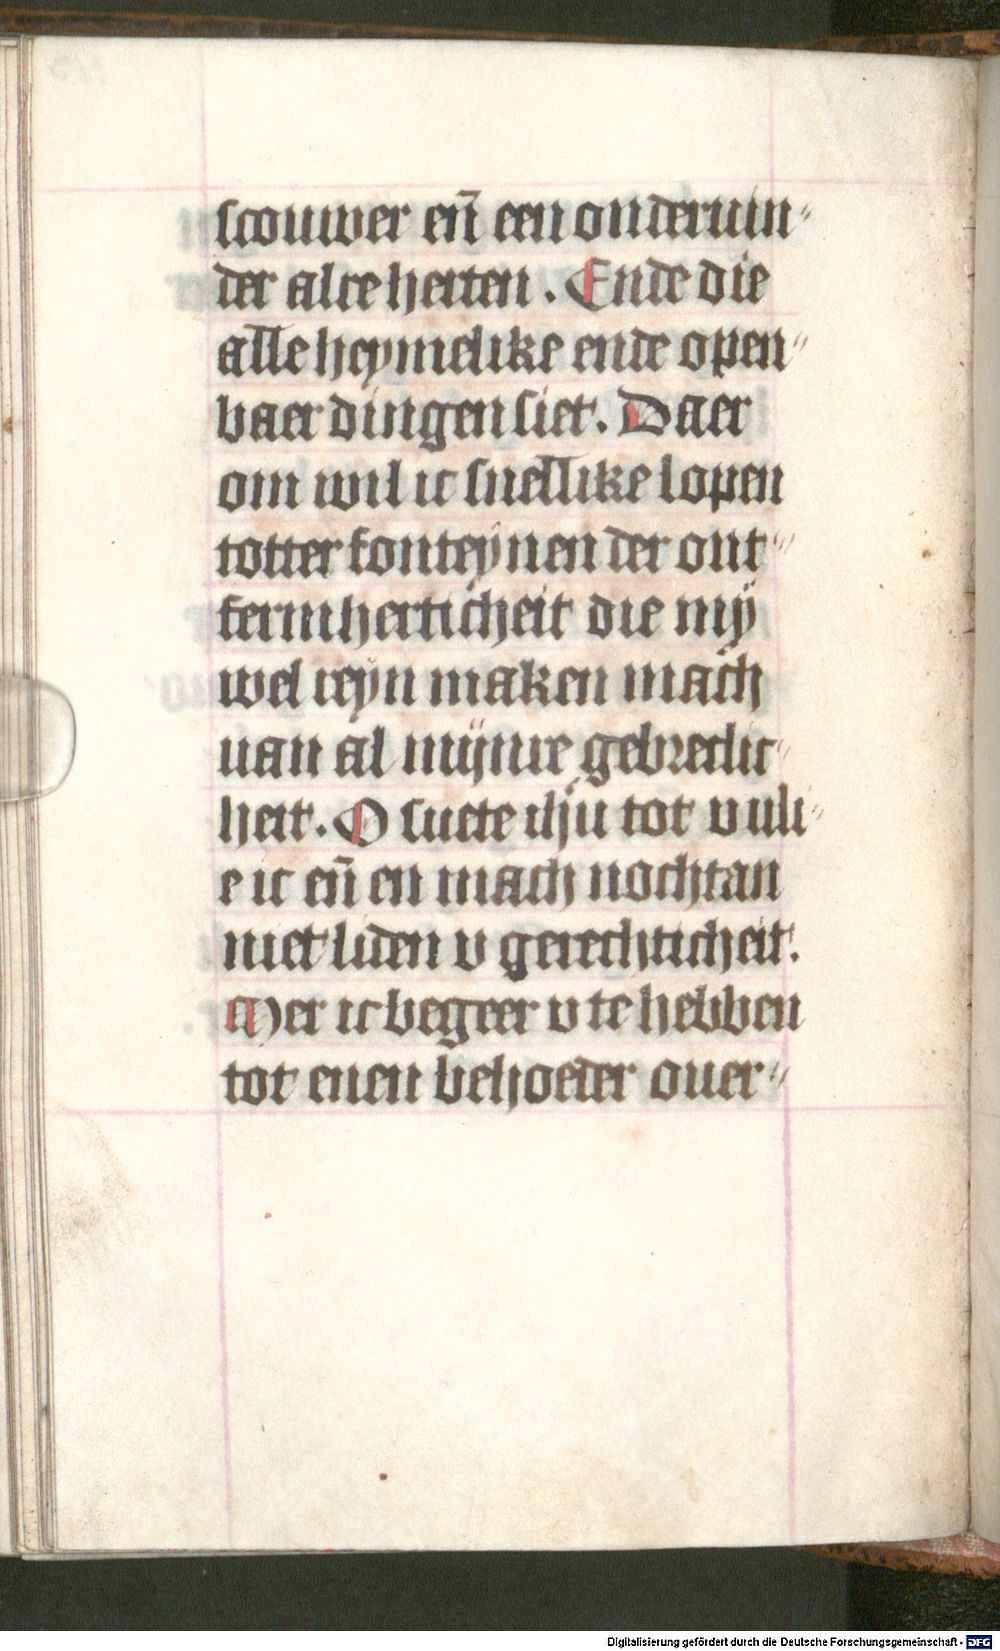 scouwer en̄ een onderuin⸗
der alre herten. Ende die
alle heymelike ende open⸗
baer dingen siet. Daer
om wil ic snellike lopen
totter fonteynen der ont⸗
fermherticheit die mij
wel reyn maken mach
uan al mijnre gebreclic⸗
heit. O suete ihu tot v vli⸗
e ic en̄ en mach nochtan
niet liden v gerechticheit.
Mer ic begeer v te hebben
tot enen behoeder ouer⸗
Digitalisierung gefördert durch die Deutsche Forschungsgemeinschaft - DFG